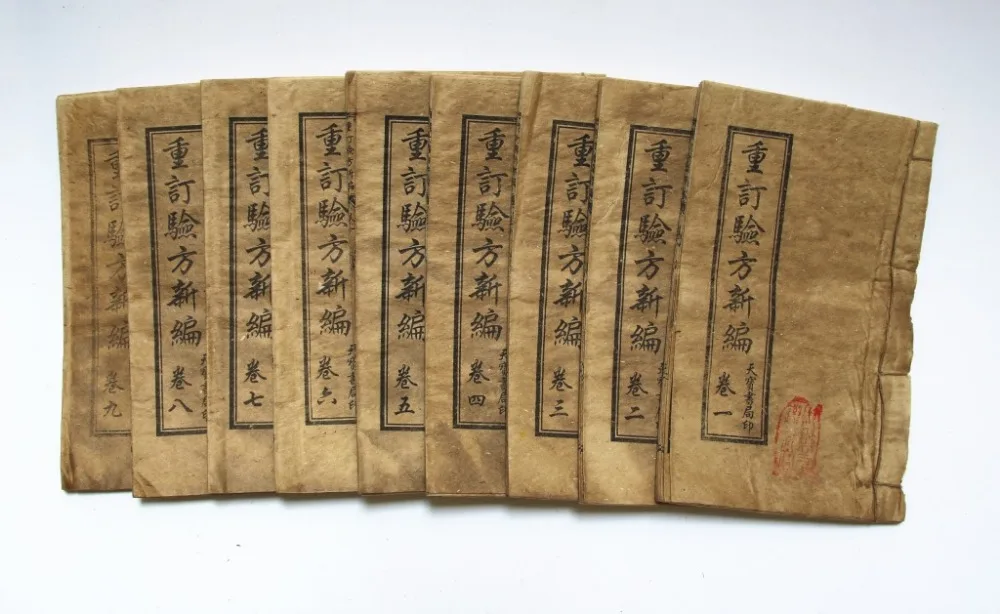 重訂驗方新編
卷一
天寶書局印
重訂驗方新編
卷二
重訂驗方新編
卷三
重訂驗方新編
卷四
天寶書局印
重訂驗方新編
卷五
重訂驗方新編
卷六
天寶書局印
重訂驗方新編
卷七
重訂驗方新編
卷八
天寶書局印
重訂驗方新編
卷九